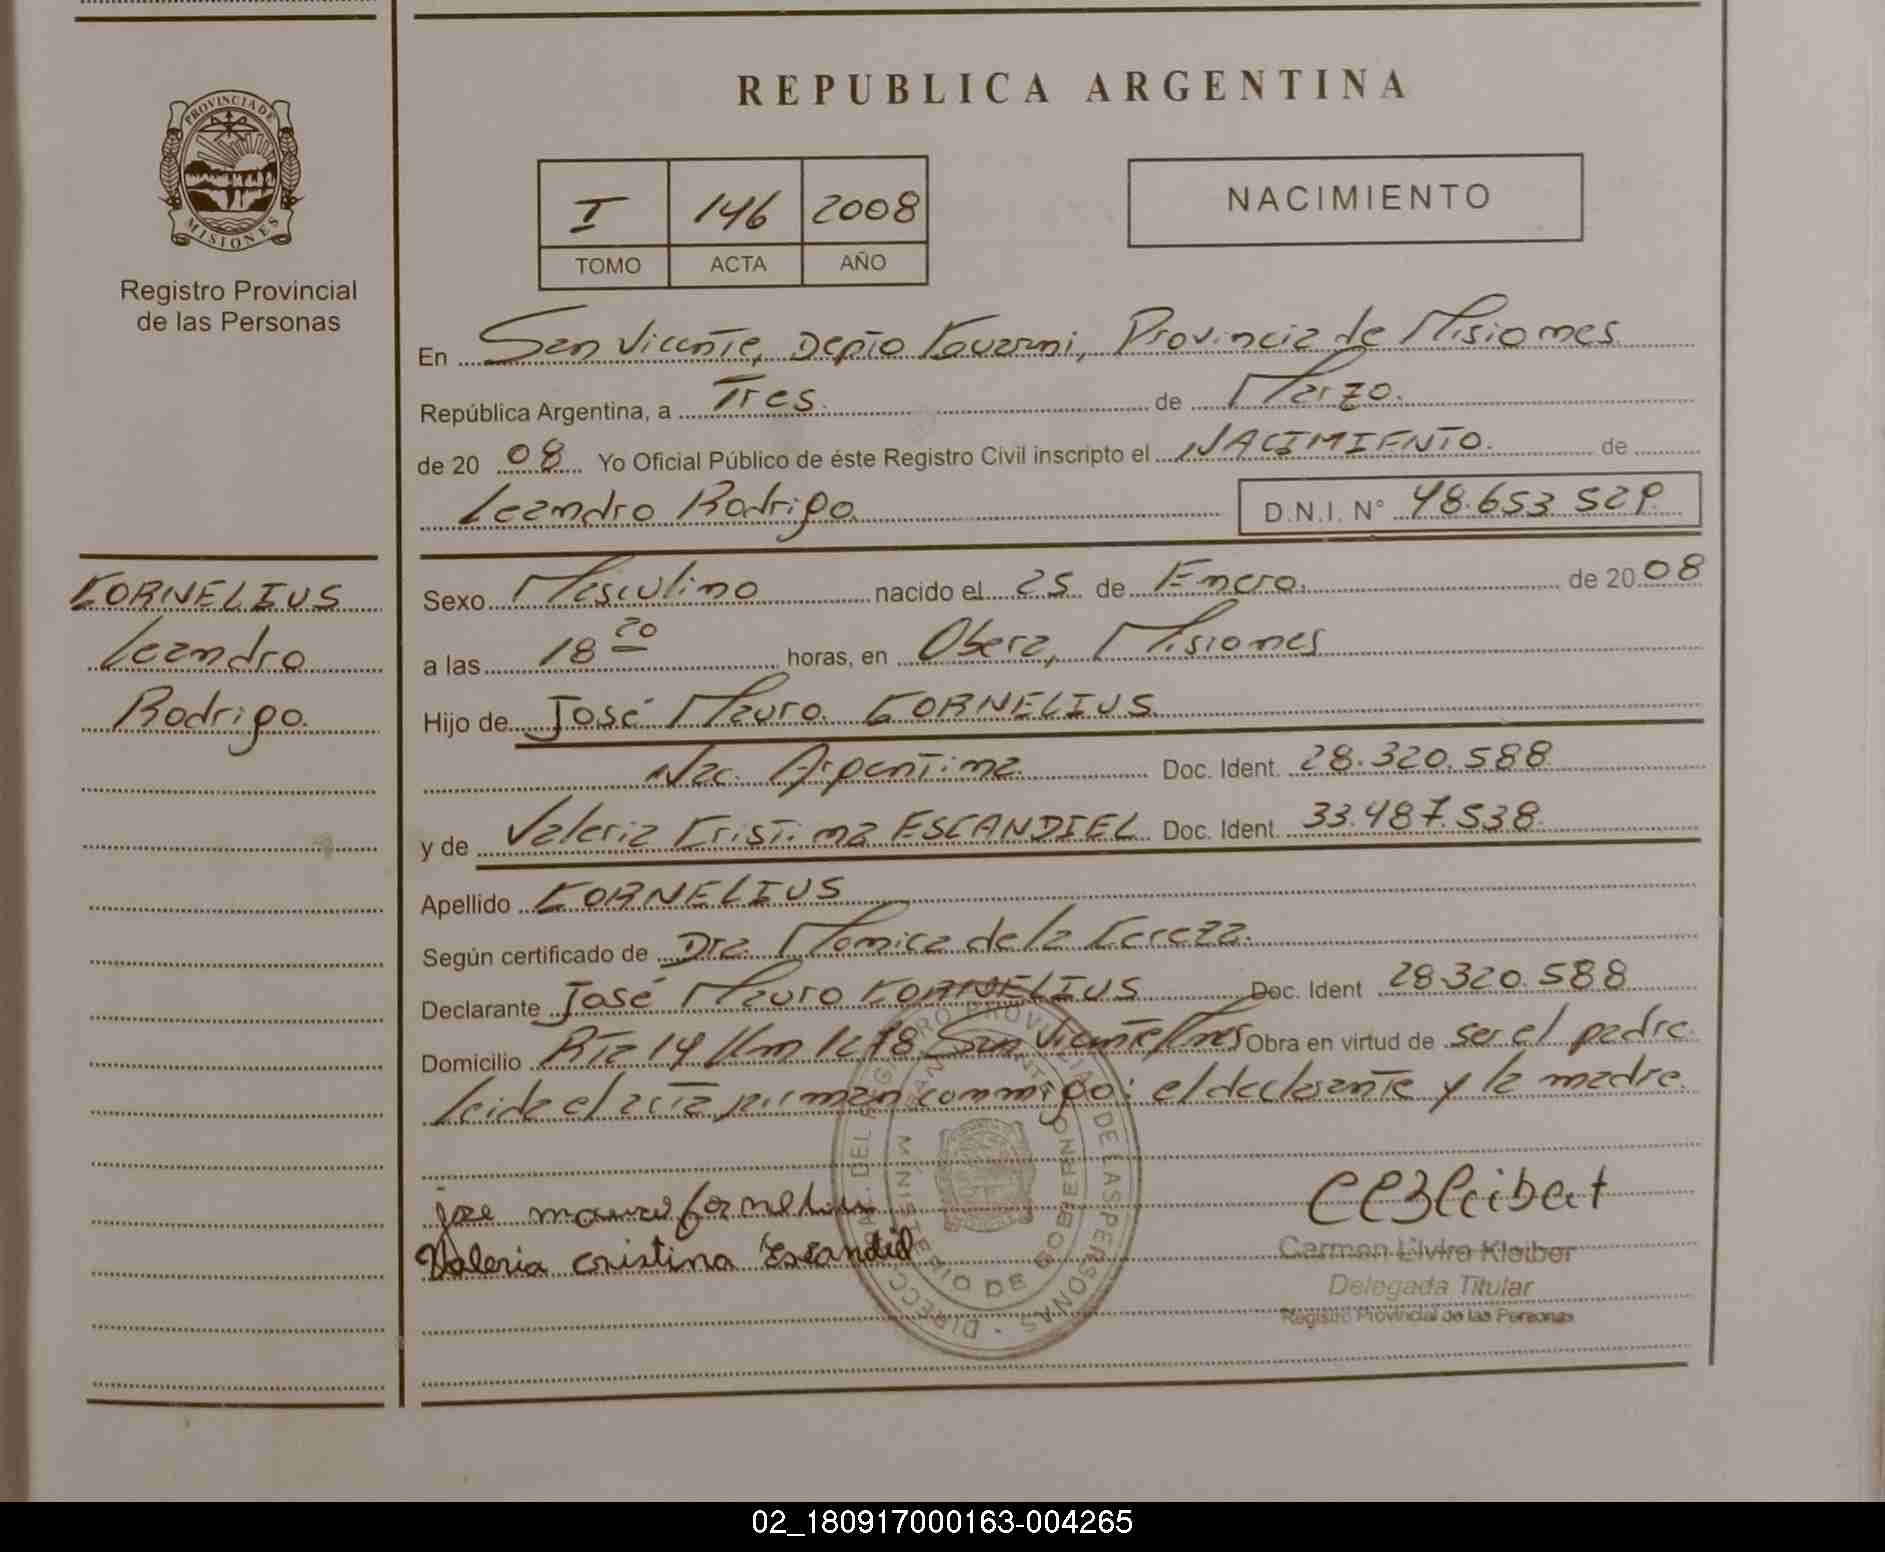 PROVINCIA DE
MISIONES
Registro Provincial
de las Personas
KORNELIUS
Leandro
Rodrigo.
REPUBLICA ARGENTINA
I 146 2008
TOMO ACTA AÑO
NACIMIENTO
En San Vicente, Depto Guarani, Provincia de Misiones.
República Argentina, a Tres. de Marzo.
de 2008 Yo Oficial Público de éste Registro Civil inscripto el NACIMIENTO. de
Leandro Rodrigo D.N.I. N° 48.653.529.
Sexo Masculino nacido el 25 de Enero. de 2008
a las 18 20 horas, en Obera, Misiones
Hijo de José Mauro. KORNELIUS.
Nac. Argentina. Doc. Ident. 28.320.588
y de Valeria Cristina ESCANDIEL Doc. Ident. 33.487.538
Apellido KORNELIUS
Según certificado de Dra. Monica de la
Declarante José Mauro KORNELIUS Doc. Ident 28.320.588
Domicilio Rta 14 Km San Vicente Mnes Obra en virtud de ser el padre.
Leida el acta firman conmigo: el declarante y la madre.
jose mauro kornelius
Valeria cristina Escandiel
DIRECC. GRAL. DEL REGISTRO PROVINCIAL DE LAS PERSONAS
MINISTERIO DE GOBIERNO
Carmen Elvira Kleiber
Delegada Titular
Registro Provincial de las Personas
02_180917000163-004265